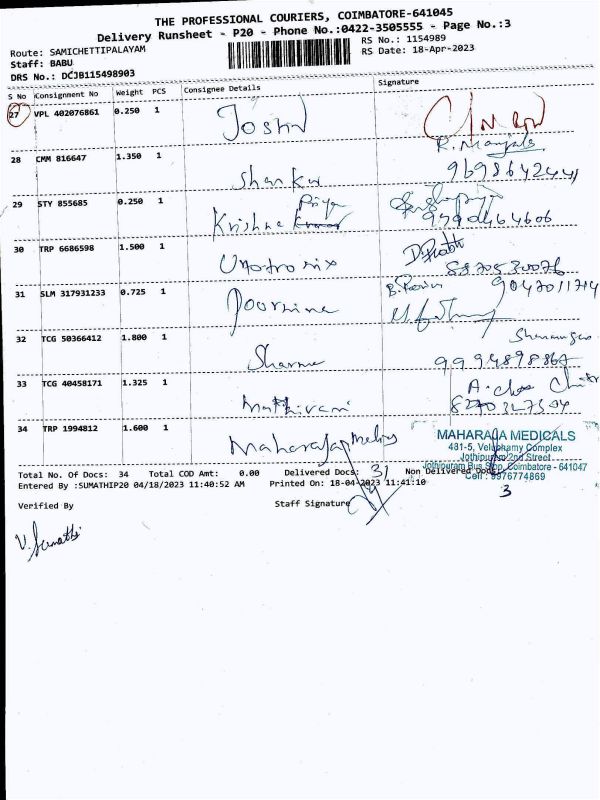 THE PROFESSIONAL COURIERS, COIMBATORE-641045
Delivery Runsheet - P20 - Phone No.:0422-3505555 - Page No.:3
Route: SAMICHETTIPALAYAM RS No.: 1154989
Staff: BABU RS Date: 18-Apr-2023
DRS No.: DCJB115498903
S No Consignment No Weight PCS Consignee Details Signature
27 VPL 402076861 0.250 1 Joshu
28 CMM 816647 1.350 1 Shankar R. Manjula
29 STY 855685 0.250 1 Krishna Priya
30 TRP 6686598 1.500 1 D. Prabh
31 SLM 317931233 0.725 1 Poornima 9047011714
32 TCG 50366412 1.800 1 Sharma 9994898867
33 TCG 40458171 1.325 1 Mathivani
34 TRP 1994812 1.600 1 Maharaja Medicals
MAHARAJA MEDICALS
481-5, Veluchamy Complex
Jothipuram 2nd Street
Jothipuram Bus Stop, Coimbatore - 641047
Cell : 9976774869
Total No. Of Docs: 34 Total COD Amt: 0.00 Delivered Docs: 31 Non Delivered Docs: 3
Entered By :SUMATHIP20 04/18/2023 11:40:52 AM Printed On: 18-04-2023 11:41:10
Verified By Staff Signature
V. Sumathi